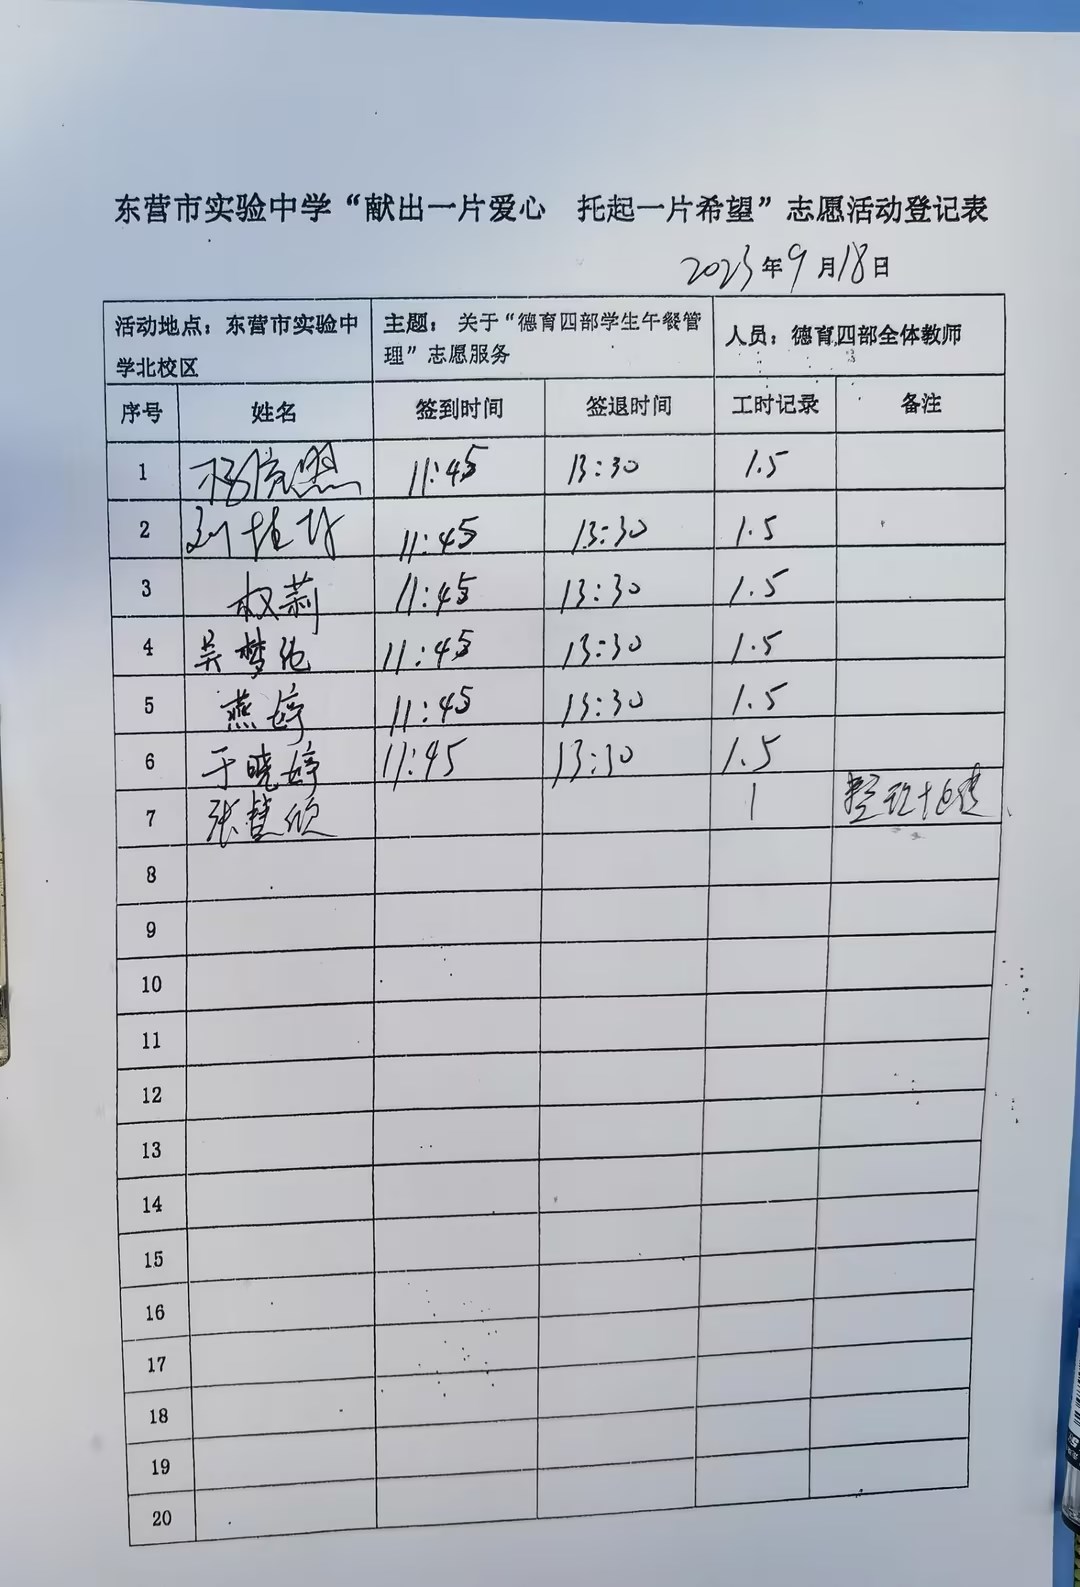 东营市实验中学“献出一片爱心 托起一片希望”志愿活动登记表
2023年9月18日
活动地点：东营市实验中
学北校区
主题：关于“德育四部学生午餐管
理”志愿服务
人员：德育四部全体教师
序号 姓名 签到时间 签退时间 工时记录 备注
1 11:45 13:30 1.5
2 刘 11:45 13:30 1.5
3 权莉 11:45 13:30 1.5
4 吴梦 11:45 13:30 1.5
5 燕婷 11:45 13:30 1.5
6 于晓婷 11:45 13:30 1.5
7 张慧 1 整理
8
9
10
11
12
13
14
15
16
17
18
19
20